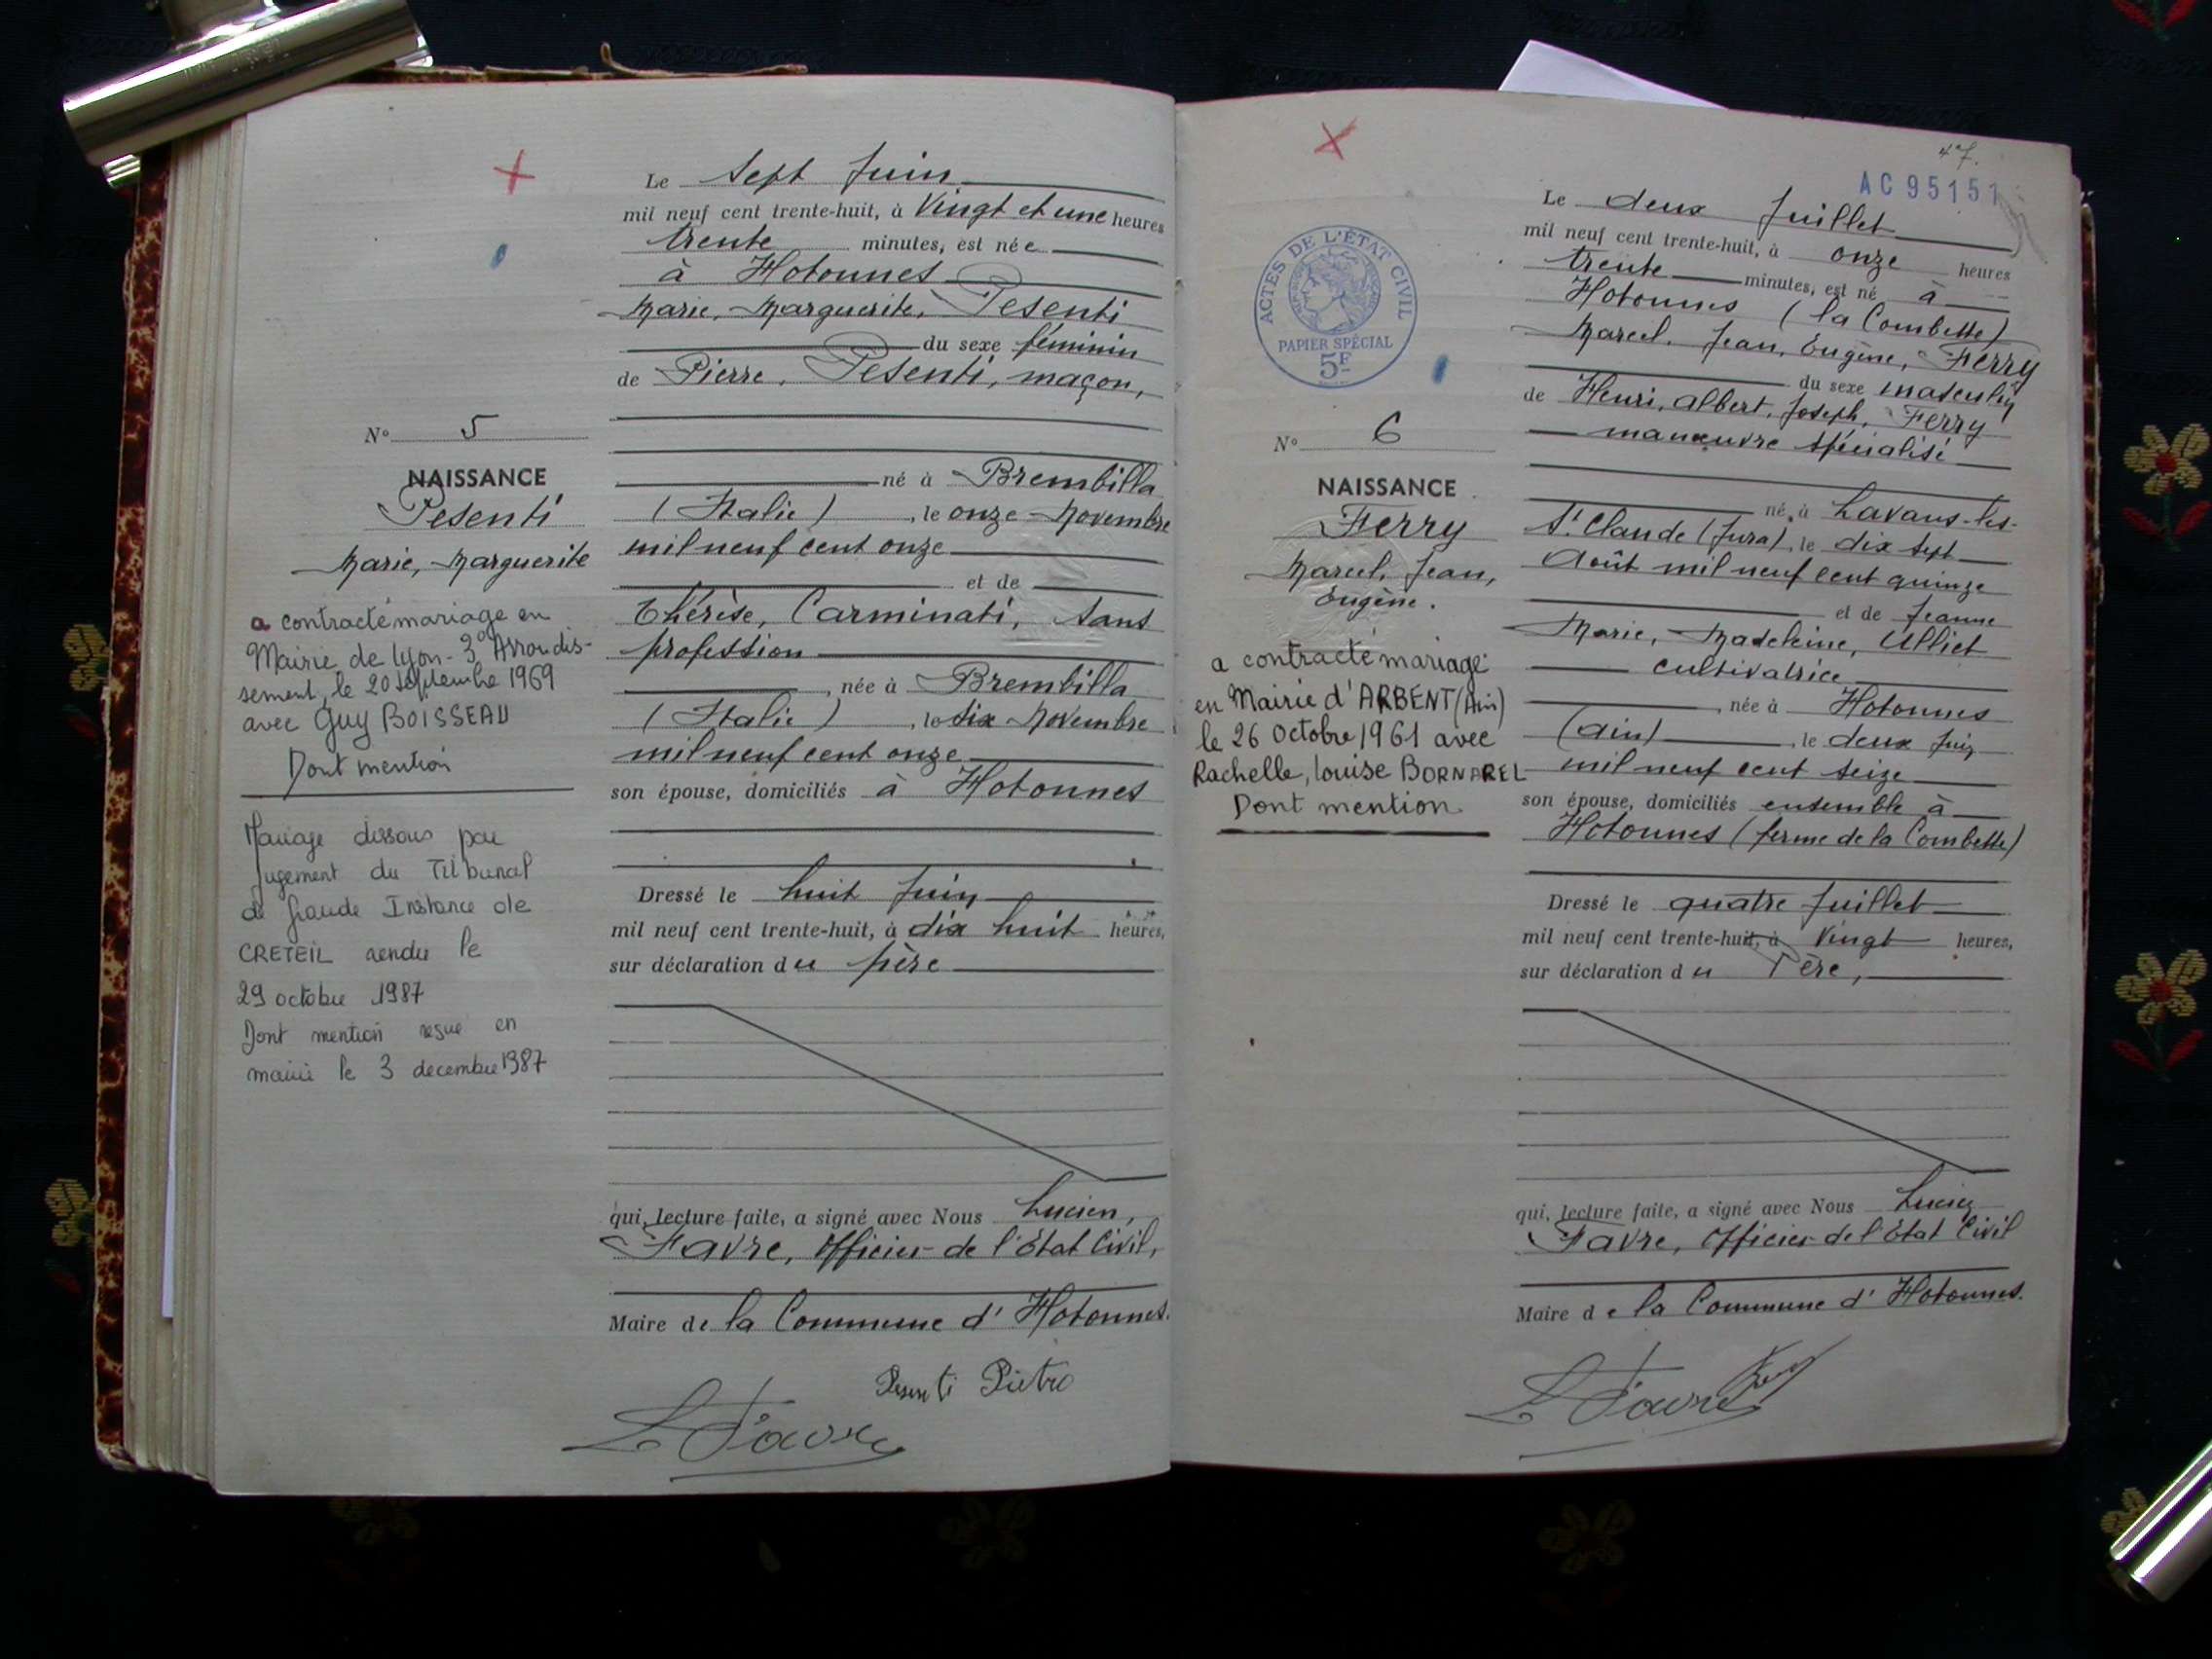 Le Sept Juin
mil neuf cent trente-huit, à Vingt et une heures
trente minutes, est née
à Hotonnes
Marie, Marguerite, Pesenti
du sexe féminin
de Pierre, Pesenti, maçon,
né à Brembilla
(Italie), le onze Novembre
mil neuf cent onze
et de
Thérèse, Carminati, sans
profession
, née à Brembilla
(Italie), le dix Novembre
mil neuf cent onze
son épouse, domiciliés à Hotonnes
Dressé le huit Juin
mil neuf cent trente-huit, à dix huit heures,
sur déclaration du père
qui, lecture faite, a signé avec Nous Lucien,
Favre, Officier de l'État Civil,
Maire de la Commune d'Hotonnes.
Pesenti Pietro
L Favre
N° 5
NAISSANCE
Pesenti
Marie, Marguerite
a contracté mariage en
Mairie de Lyon - 3e Arrondis-
sement, le 20 septembre 1969
avec Guy BOISSEAU
Dont mention
Mariage dissous par
jugement du Tribunal
de Grande Instance de
CRETEIL rendu le
29 octobre 1987
Dont mention reçue en
mairie le 3 decembre 1987
47.
AC 95151
Le deux Juillet
mil neuf cent trente-huit, à onze heures
trente minutes, est né à
Hotonnes (la Combette)
Marcel, Jean, Eugène, Ferry
du sexe masculin
de Henri, Albert, Joseph, Ferry
manœuvre spécialisé
né à Lavans-les-
St Claude (Jura), le dix sept
Août mil neuf cent quinze
et de Jeanne
Marie, Madeleine, Ulliet
cultivatrice
, née à Hotonnes
(Ain), le deux Juin
mil neuf cent seize
son épouse, domiciliés ensemble à
Hotonnes (ferme de la Combette)
Dressé le quatre Juillet
mil neuf cent trente-huit, à Vingt heures,
sur déclaration du Père,
qui, lecture faite, a signé avec Nous Lucien
Favre, Officier de l'État Civil
Maire de la Commune d'Hotonnes.
L Favre
ACTES DE L'ÉTAT CIVIL
RÉPUBLIQUE FRANÇAISE
PAPIER SPÉCIAL
5F
N° 6
NAISSANCE
Ferry
Marcel, Jean,
Eugène.
a contracté mariage
en Mairie d'ARBENT (Ain)
le 26 octobre 1961 avec
Rachelle, Louise BORNAREL
Dont mention